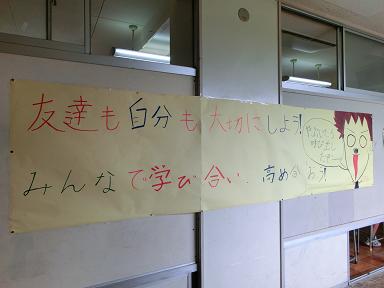 友達も自分も大切にしよう!
みんなで学び合い、高め合おう!